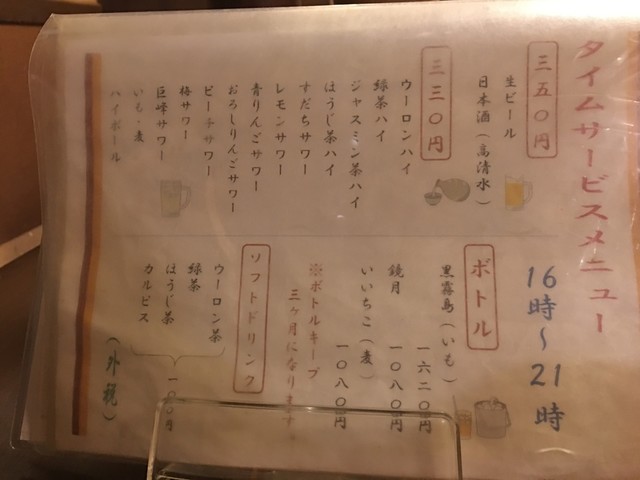 タイムサービスメニュー
16時～21時
三五〇円
生ビール
日本酒(高清水)
三三〇円
ウーロンハイ
緑茶ハイ
ジャスミン茶ハイ
ほうじ茶ハイ
すだちサワー
レモンサワー
青りんごサワー
おろしりんごサワー
ピーチサワー
梅サワー
巨峰サワー
いも・麦
ハイボール
ボトル
黒霧島(いも) 一六二〇円
鏡月 一〇八〇円
いいちこ(麦) 一〇八〇円
※ボトルキープ
三ヶ月になります。
ソフトドリンク
ウーロン茶
緑茶
ほうじ茶
カルピス
一〇〇円
(外税)